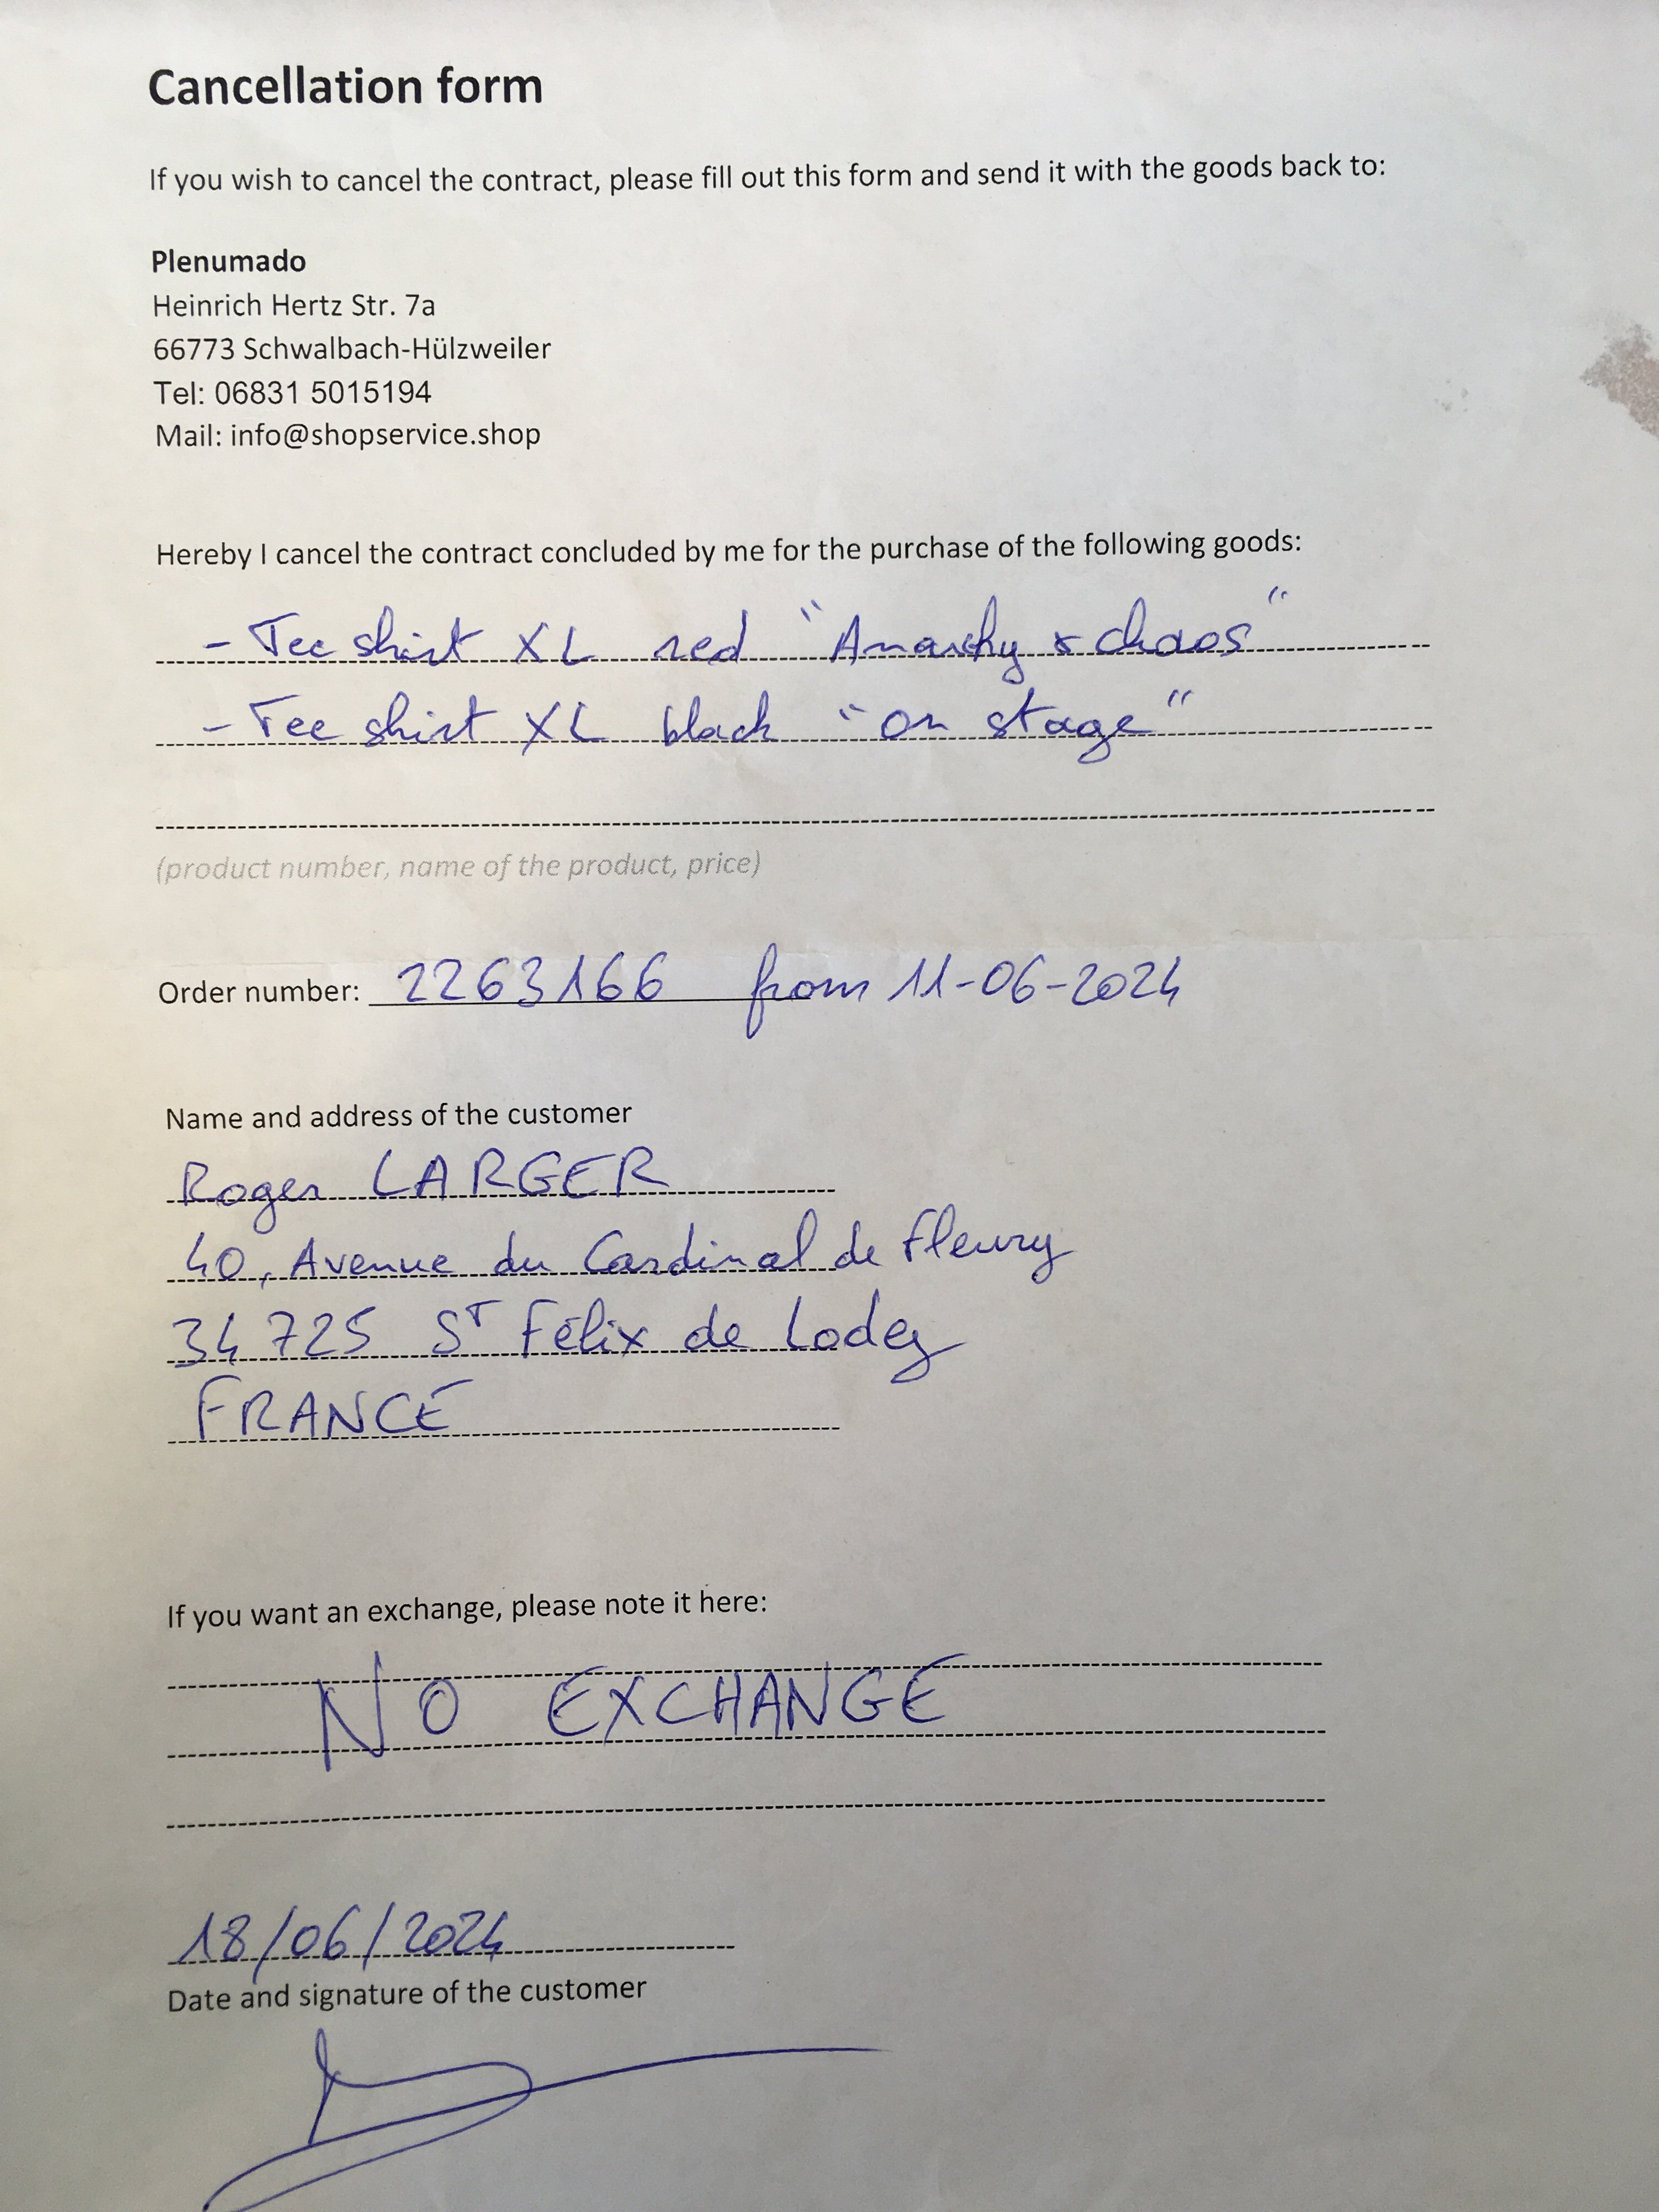 Cancellation form
If you wish to cancel the contract, please fill out this form and send it with the goods back to:
Plenumado
Heinrich Hertz Str. 7a
66773 Schwalbach-Hülzweiler
Tel: 06831 5015194
Mail: info@shopservice.shop
Hereby I cancel the contract concluded by me for the purchase of the following goods:
- Tee shirt XL red "Anarchy & chaos"
- Tee shirt XL black "on stage"
(product number, name of the product, price)
Order number: 2263166 from 11-06-2024
Name and address of the customer
Roger LARGER
40, Avenue du Cardinal de Fleury
34725 ST Félix de Lodez
FRANCE
If you want an exchange, please note it here:
NO EXCHANGE
18/06/2024
Date and signature of the customer